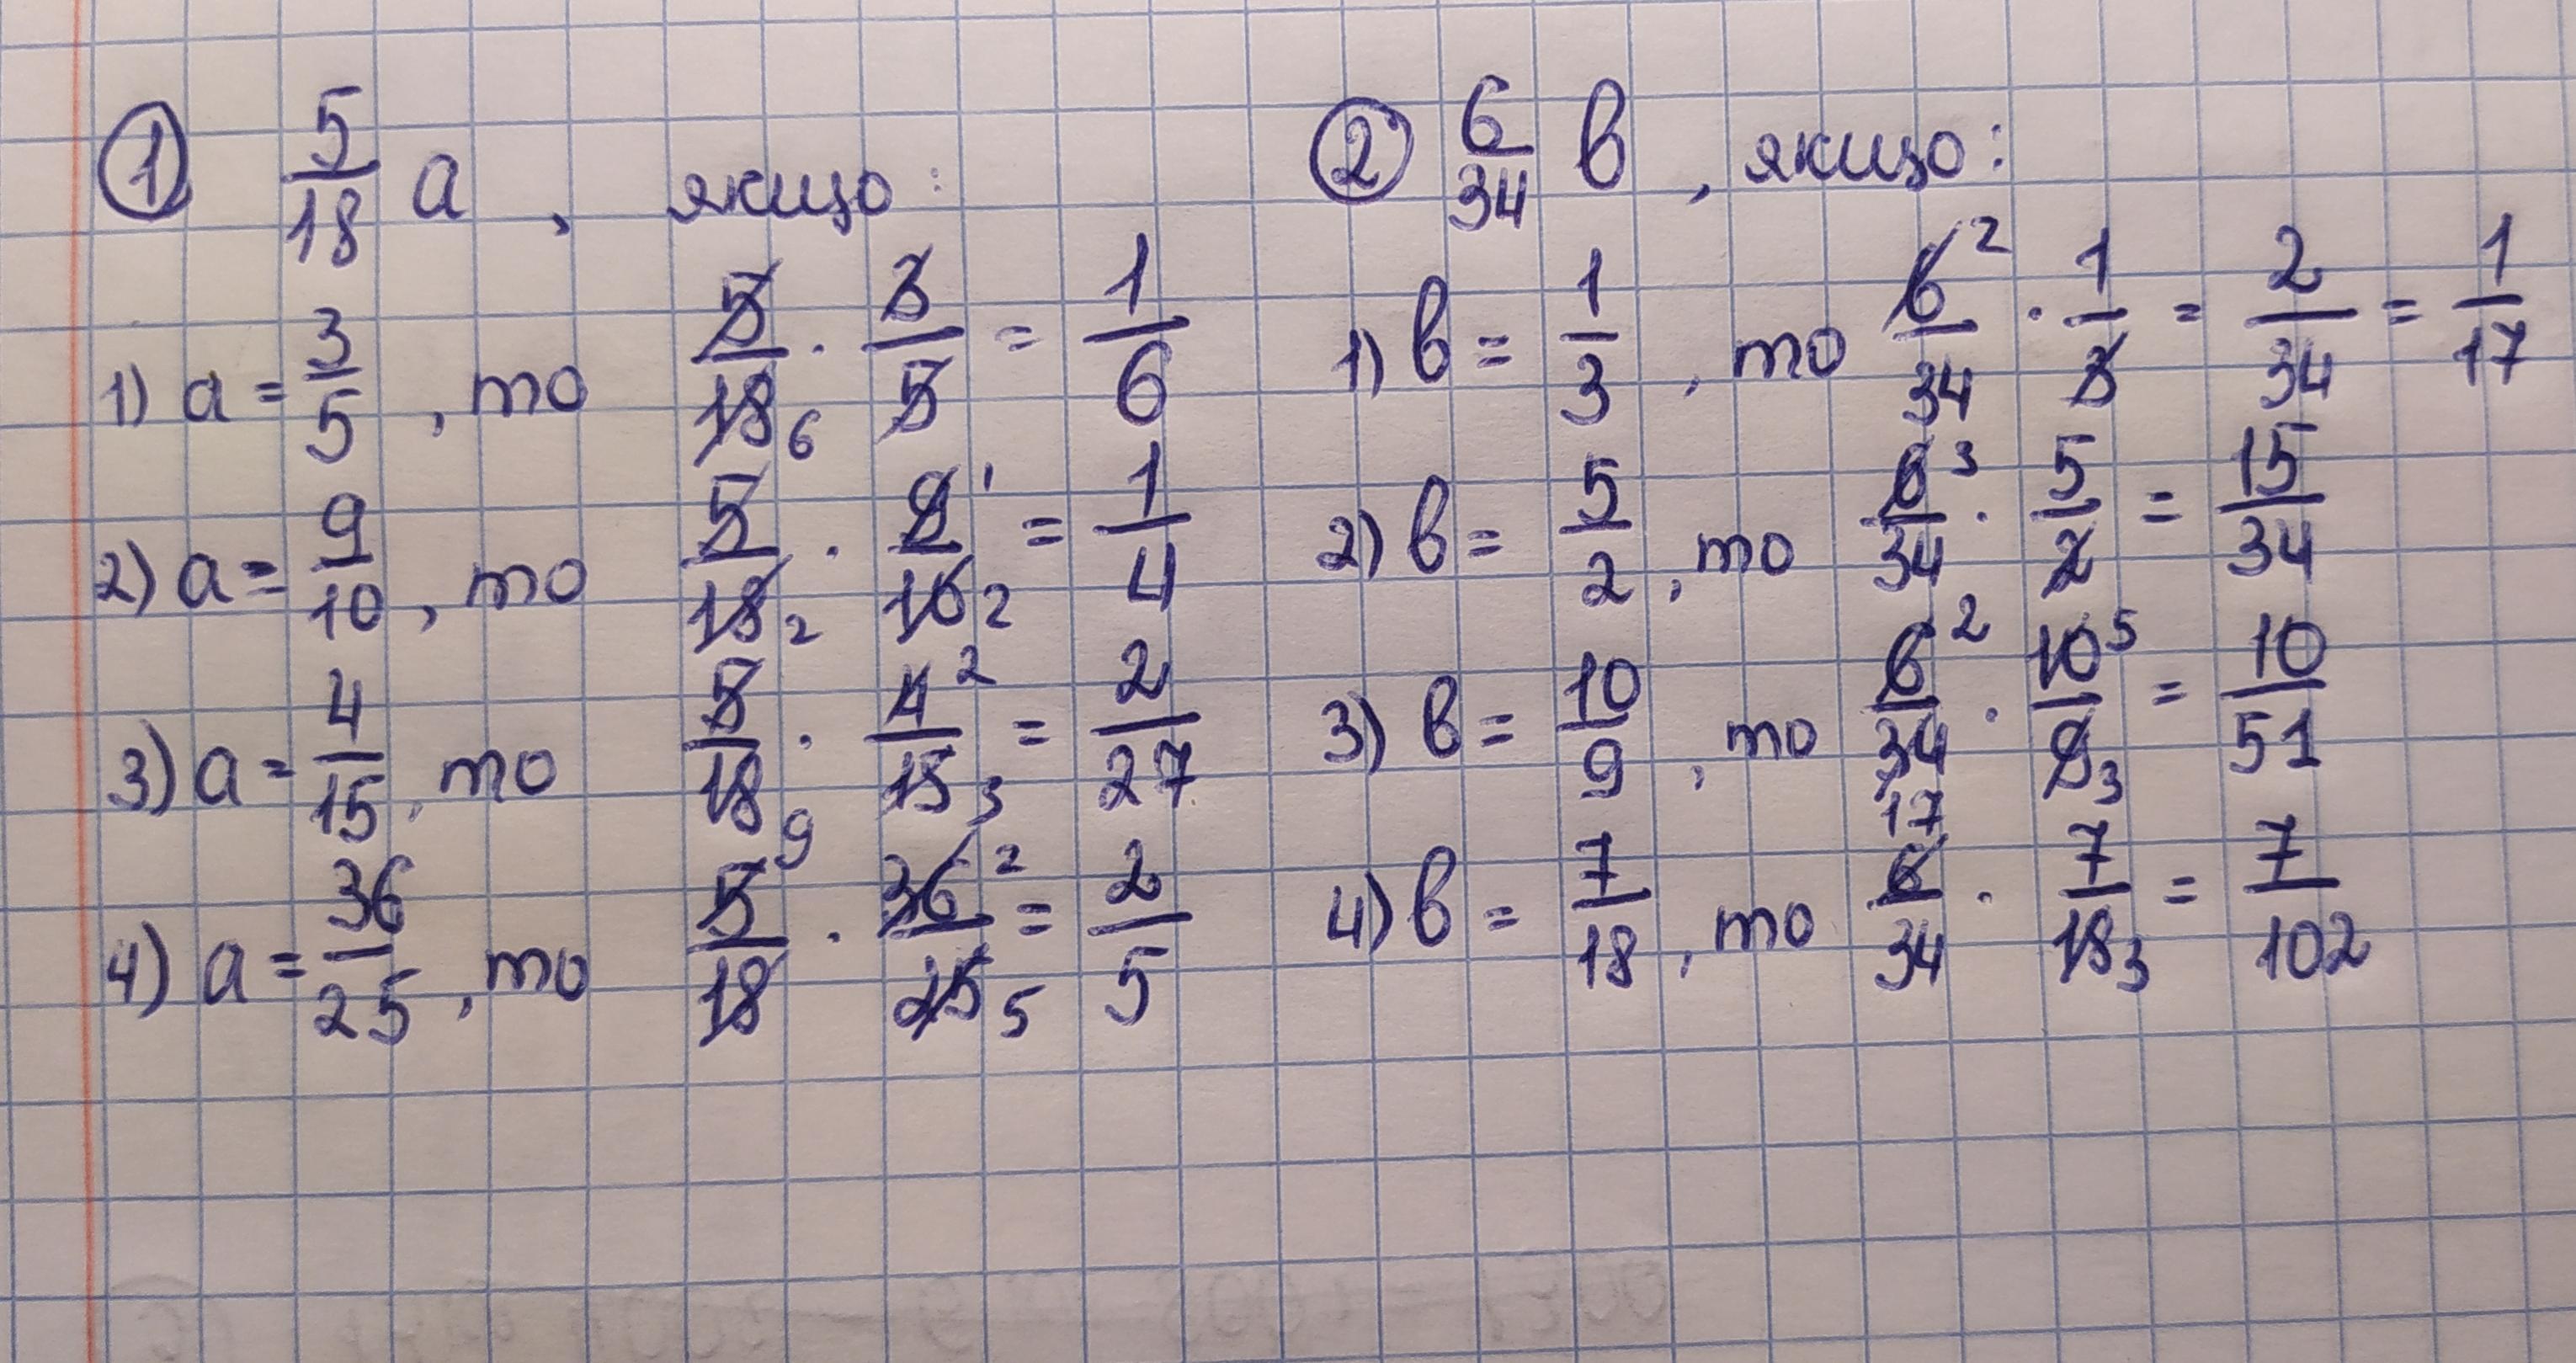 ① 5/18 a , якщо:
1) a = 3/5 , то 5/18 6 · 3/5 = 1/6
2) a = 9/10 , то 5/18 2 · 9 1/10 2 = 1/4
3) a = 4/15 , то 5/18 9 · 4 2/15 3 = 2/27
4) a = 36/25 , то 5/18 · 36 2/25 5 = 2/5
② 6/34 в , якщо:
1) в = 1/3 , то 6 2/34 · 1/3 = 2/34 = 1/17
2) в = 5/2 , то 6 3/34 · 5/2 = 15/34
3) в = 10/9 , то 6 2/34 17 · 10 5/9 3 = 10/51
4) в = 7/18 , то 6/34 · 7/18 3 = 7/102